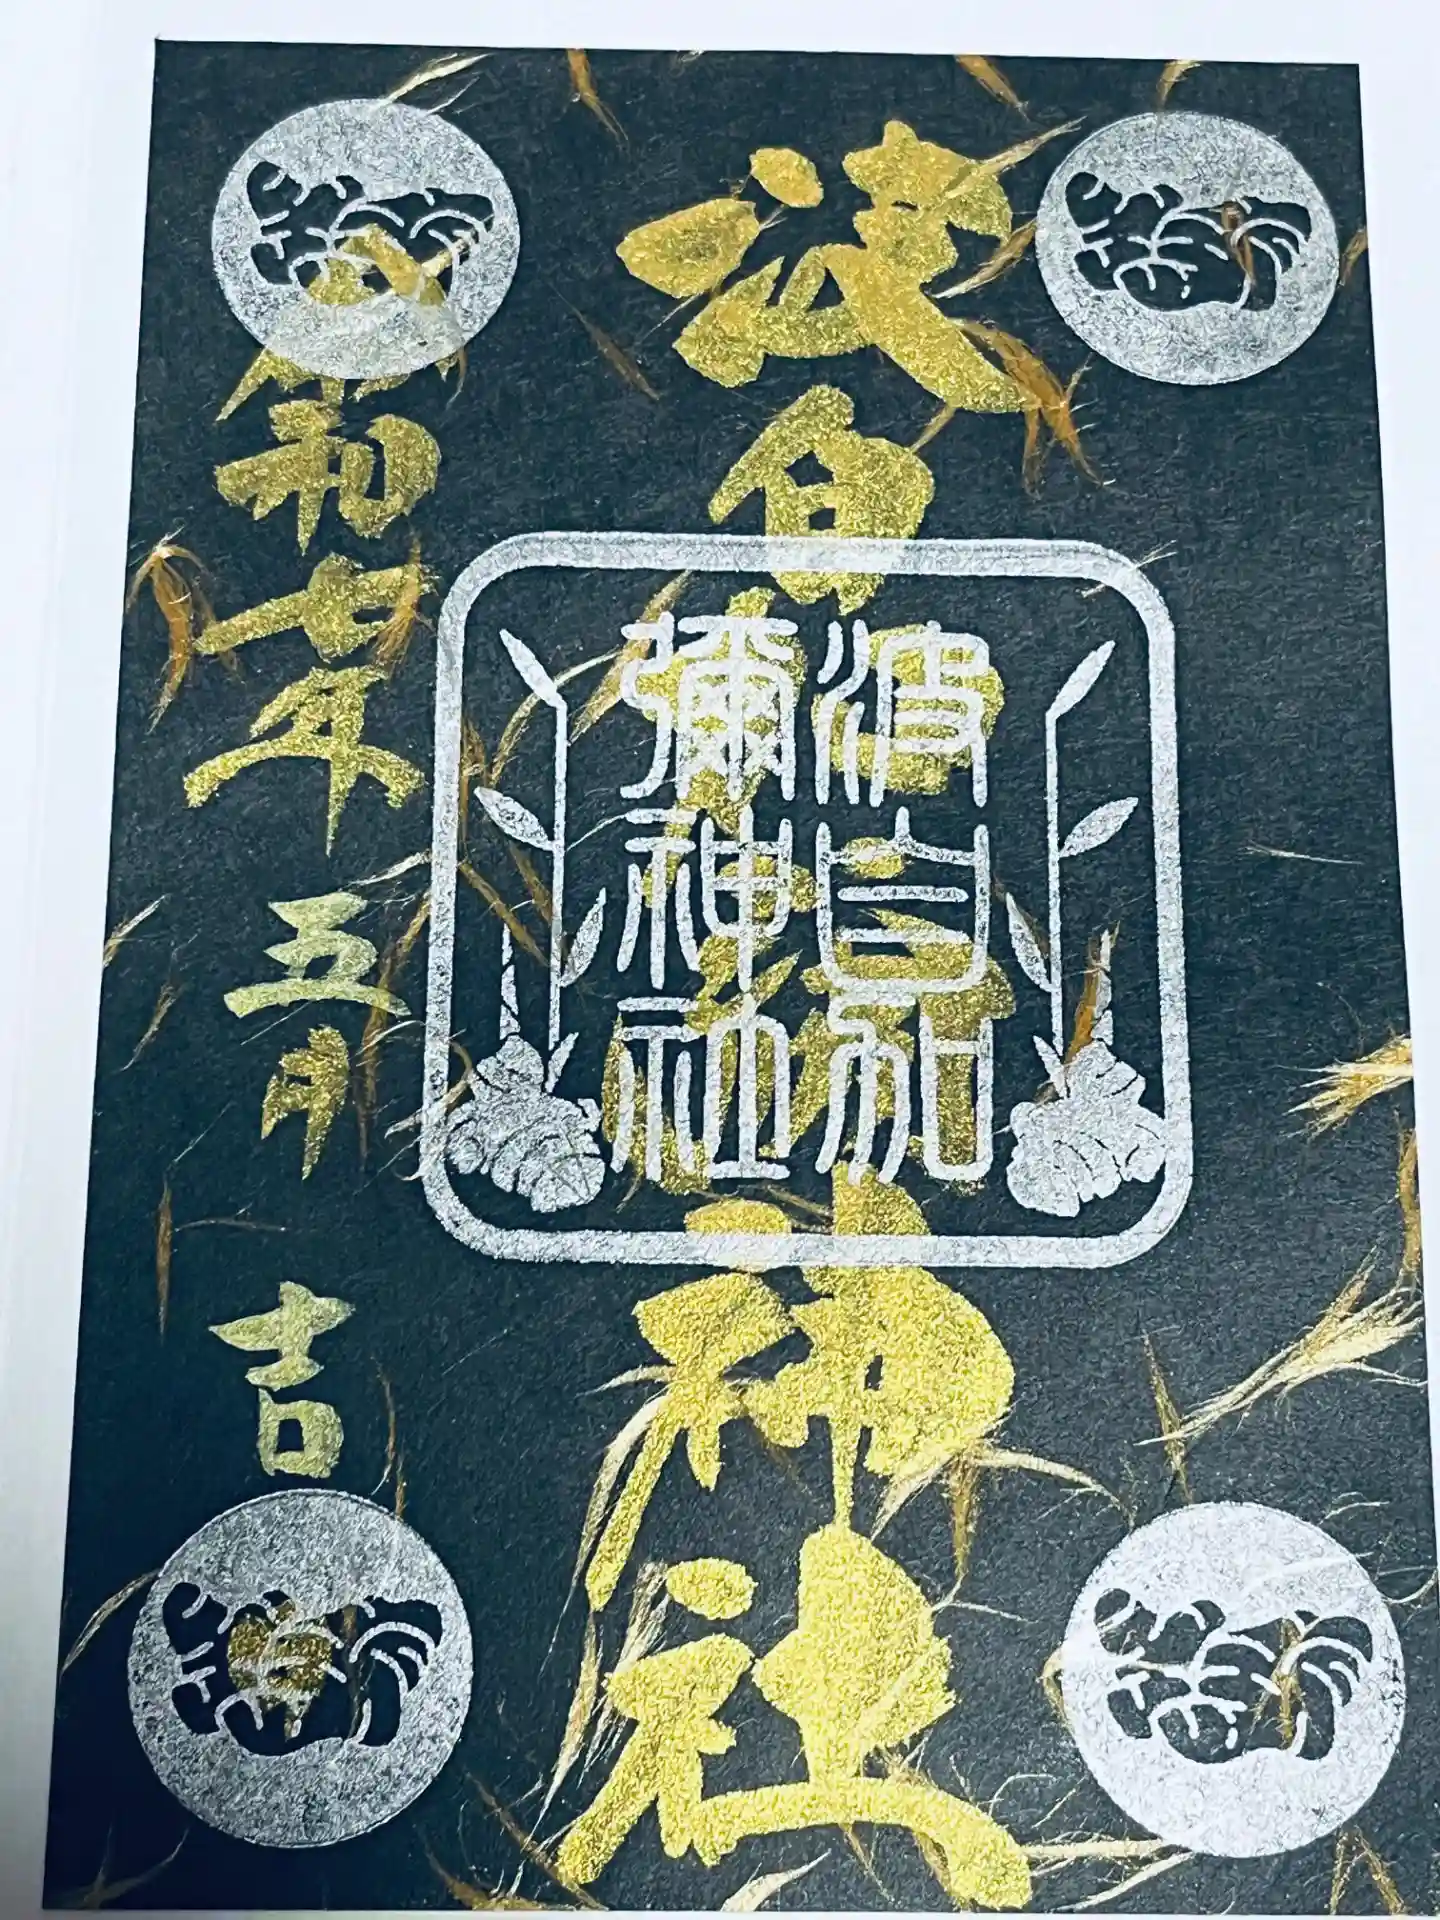 波自加彌神社
波自加
彌神社
令和七年五月吉日